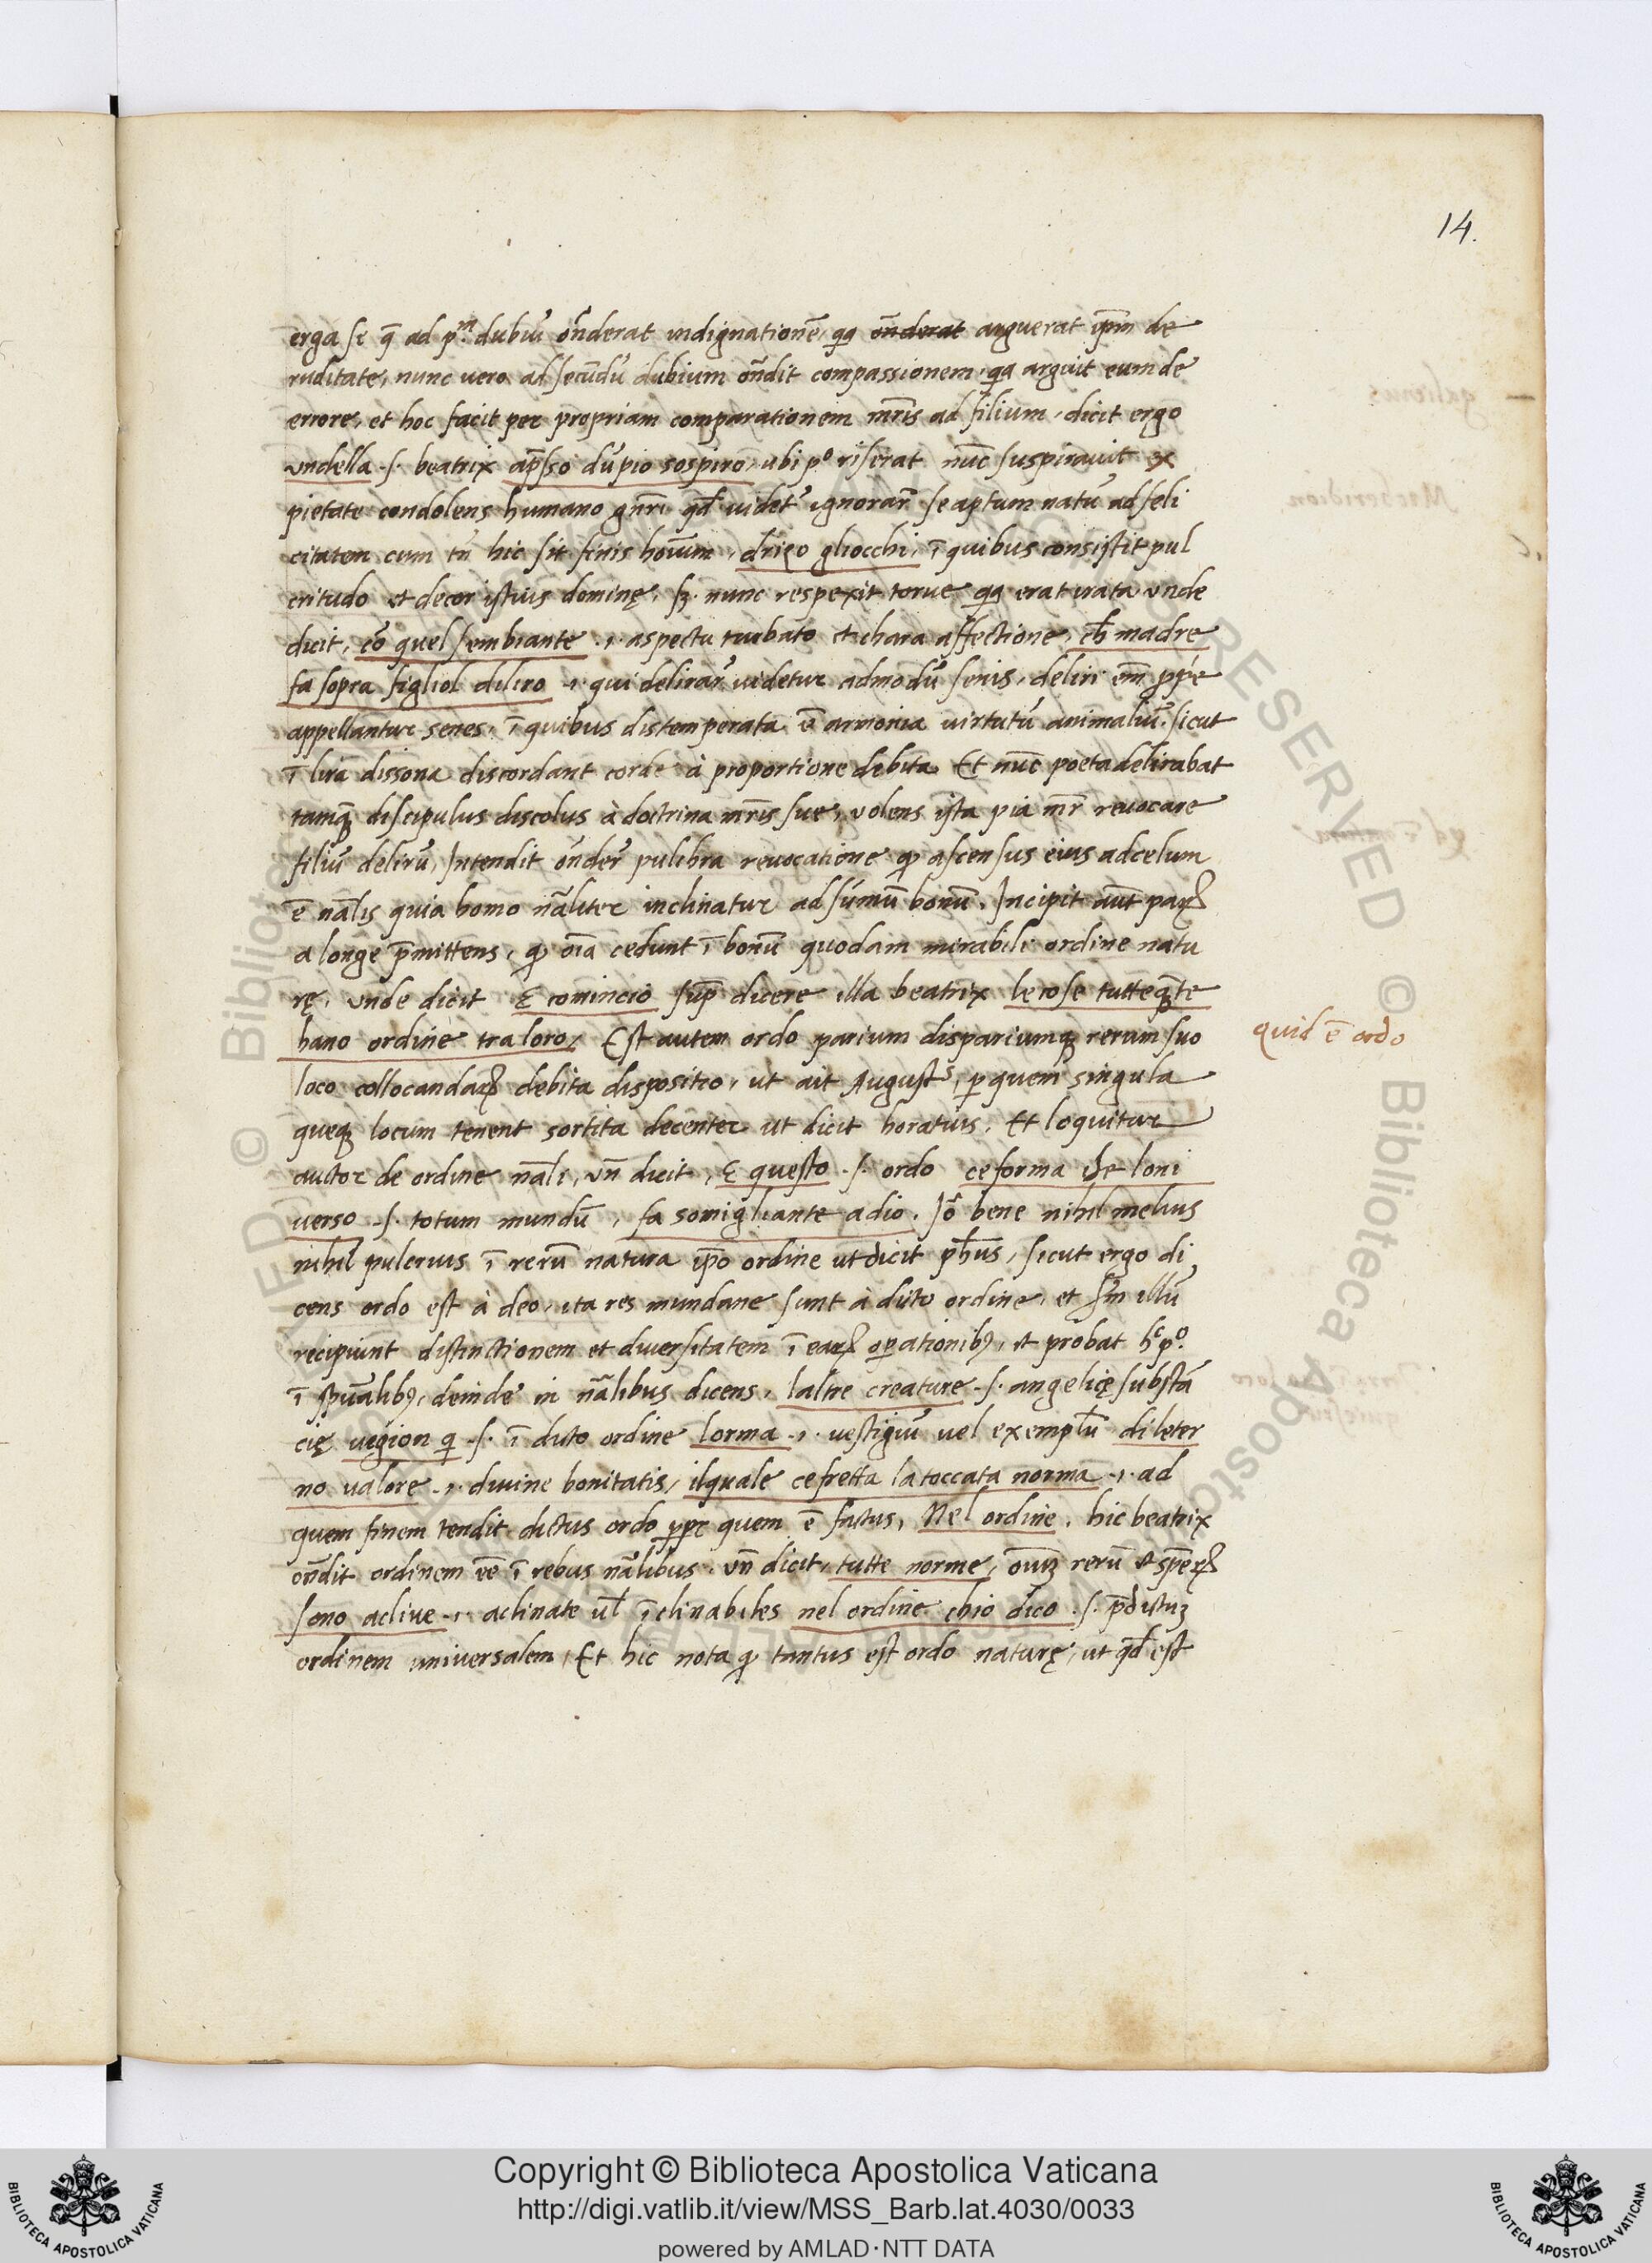 14.
erga se q̄ ad p.ᵐ dubiū on̄derat indignationē, qꝫ on̄derat arguerat ip̄m de
ruditate, nunc uero ad secūdū dubium on̄dit compassionem, qꝫ arguit eum de
errore, et hoc facit per propriam comparationem mr̄is ad filium, dicit ergo
undella .s. beatrix ap̄sso dūpio sospiro, ubi pº riserat nūc suspirauit ex
pietate condolens humano gn̄ri qd̄ uidet̄ ignorar̄ se aptum natū ad feli
citatem cum tn̄ hic sit finis hoīum, driço gliocchi, ī quibus consistit pul
critudo et decor istius dominę, sꝫ nunc respexit torue qꝫ erat irata unde
dicit, cō quel sembiante .i. aspectu turbato et chara affectione, ch̄ madre
fa sopra figliol diliro .i. qui delirar̄ uidetur admodū senis, deliri em̄ pp̄ie
appellantur senes, ī quibus distemperata ē armonia uirtutū animaliū, sicut
ī lira dissona discordant corde à proportione debita. Et nūc poeta delirabat
tamqꝫ discipulus discolus à doctrina mr̄is sue, uolens ista pia mr̄ reuocare
filiū delirū, Intendit on̄der̄ pulchra reuocatione qꝫ ascensus eius ad celum
ē nālis quia homo nāliter inclinatur ad sūmū bonū. Incipit aūt paꝝ
a longe p̄mittens, qꝫ oīa cedunt ī bonū quodam mirabili ordine natu
rę, unde dicit E comincio sup̄ dicere illa beatrix le cose tutteqꝫte
hano ordine tra loro, Est autem ordo parium dispariumqꝫ rerum suo
loco collocandaꝝ debita dispositio, ut ait Augustˢ, p̱ quem singula
queqꝫ locum tenent sortita decenter ut dicit horatius. Et loquitur
auctor de ordine nāli, un̄ dicit, E questo .s. ordo ce forma che loni
verso .s. totum mundū, fa somigliante a dio. Iō bene nihil melius
nihil pulcrius ī rerū natura ip̄o ordine ut dicit ph̄us, sicut ergo di
cens ordo est à deo, ita res mundane sunt à dicto ordine, et sm̄ illū
recipiunt distinctionem et diuersitatem ī eaꝝ op̱ationibꝫ, et probat hᶜ pº.
ī spūalibꝫ, deinde in nālibus dicens, laltre creature .s. angelicę substā
cię uegion q̱ .s. ī dicto ordine lorma .i. uestigiū uel exemplū dileter
no valore .i. diuine bonitatis, ilquale ce fretta la toccata norma .i. ad
quem finem tendit dictus ordo pp̱ quem ē factus, Nel ordine, hic beatrix
on̄dit ordinem eē ī rebus nālibus, un̄ dicit, tutte norme, oīuꝫ rerū et spēꝝ
sono acline .i. aclinate ul̄ īclinabiles nel ordine chio dico .s. p̄dictuꝫ
ordinem uniuersalem, Et hic nota qꝫ tantus est ordo naturę, ut qd̄ est
quid ē ordo
© Biblioteca Apostolica
RESERVED
Copyright © Biblioteca Apostolica Vaticana
http://digi.vatlib.it/view/MSS_Barb.lat.4030/0033
powered by AMLAD·NTT DATA
BIBLIOTECA APOSTOLICA VATICANA
BIBLIOTECA APOSTOLICA VATICANA